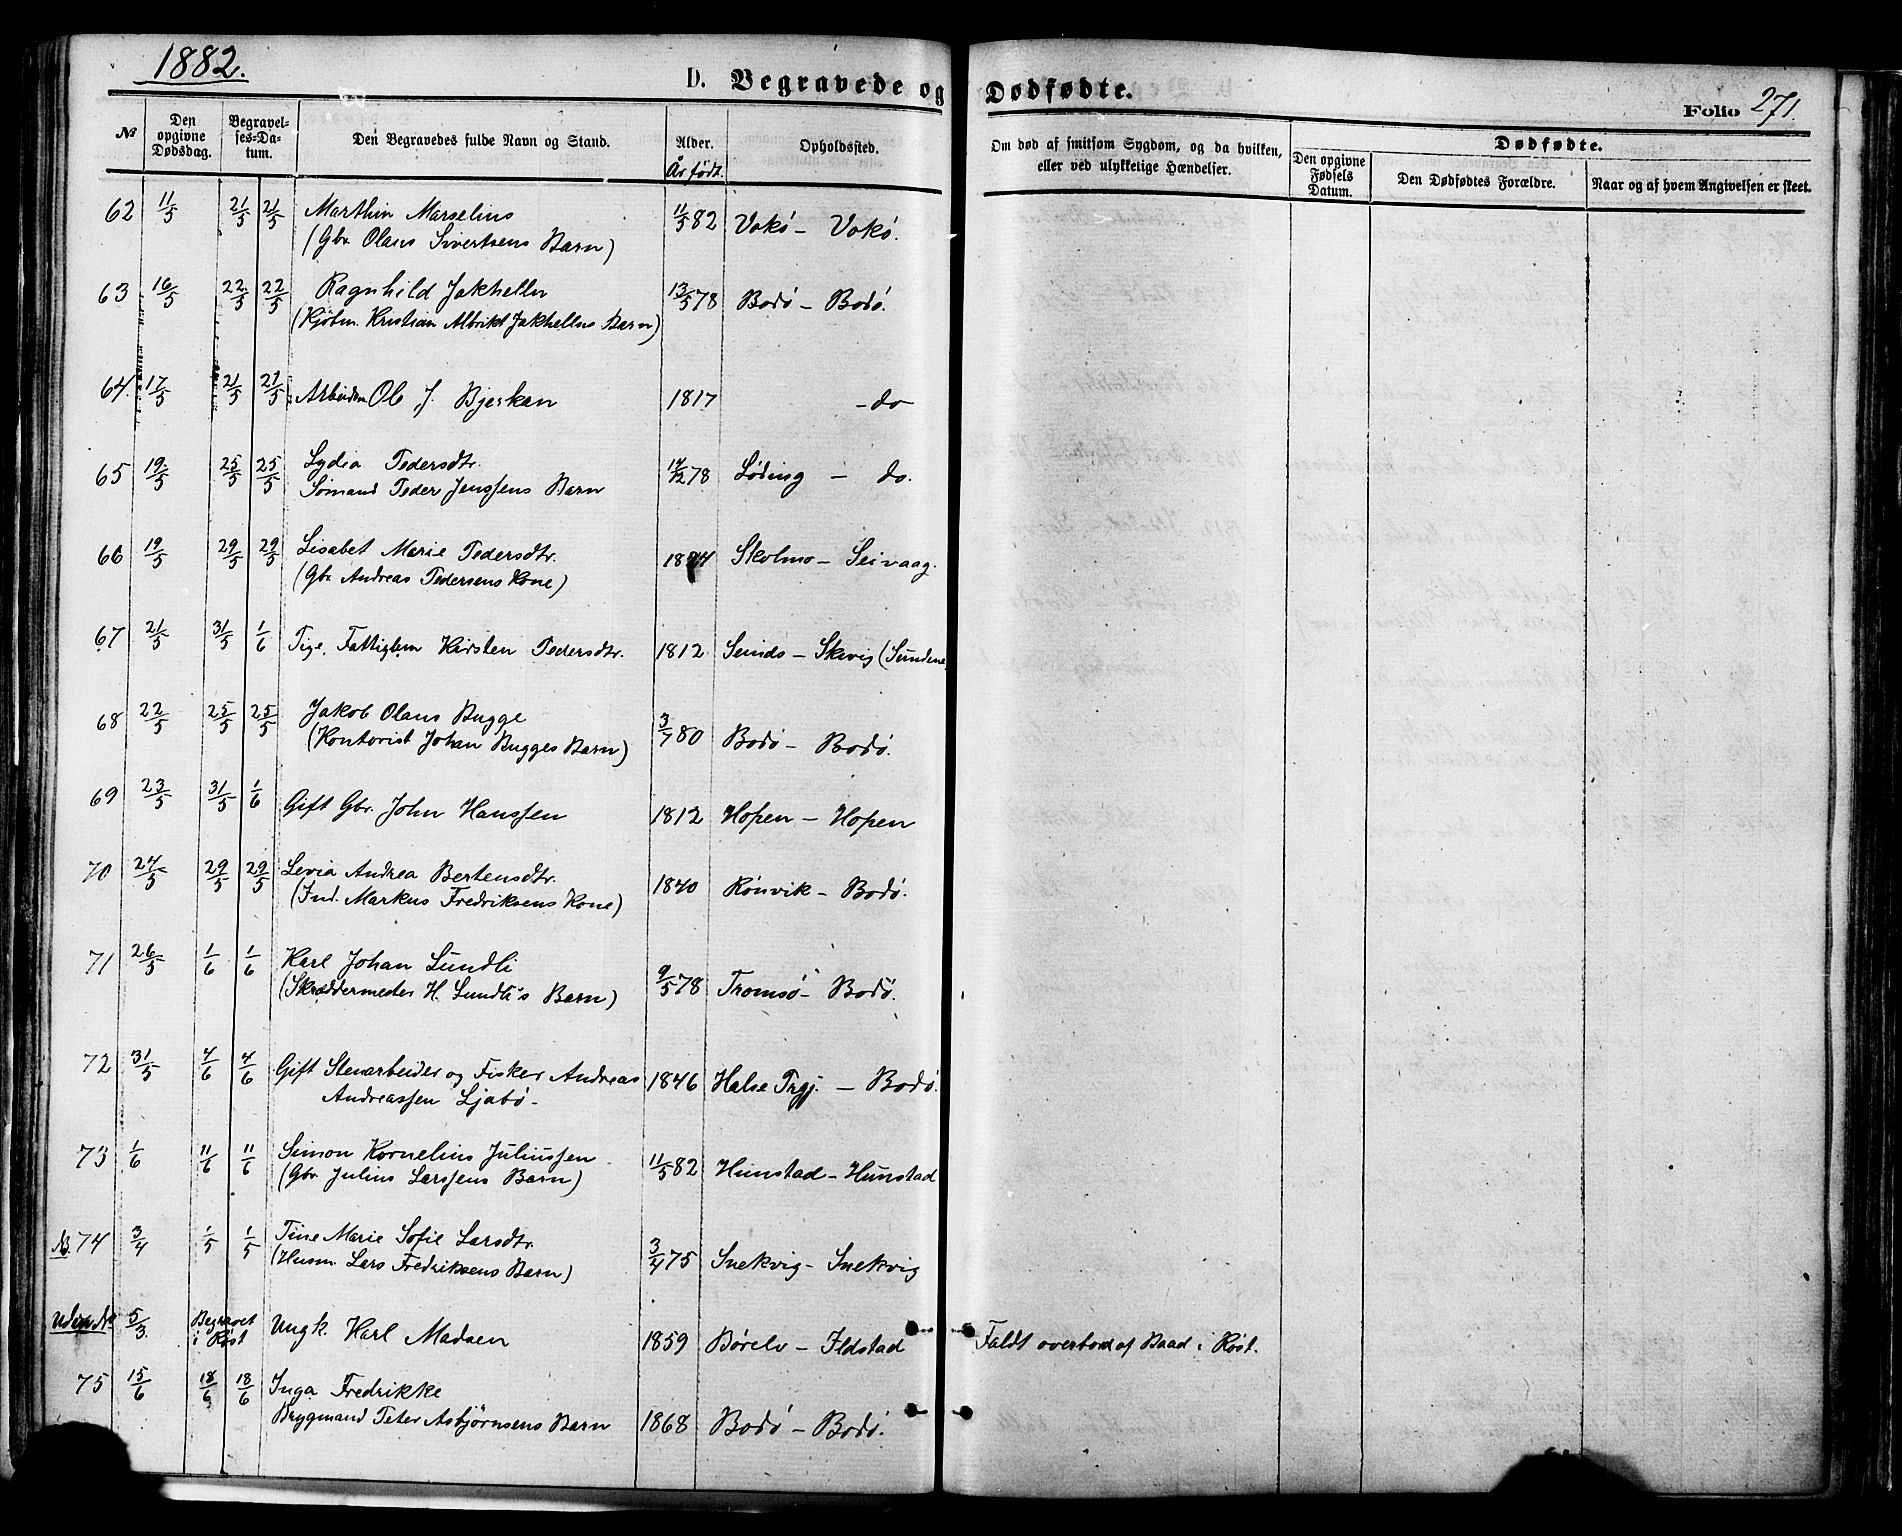 1882.
D. Begravede og Dødfødte.
Folio 271.
№ Den opgivne Dødsdag. Begravelses-Datum. Den Begravedes fulde Navn og Stand. Alder. År født. Opholdssted. Om død af smitsom Sygdom, og da hvilken, eller ved ulykkelige Hændelser. Dødfødte. Den opgivne Fødsels Datum. Den Dødfødtes Forældre. Naar og af hvem Angivelsen er skeet.
62 11/5 21/5 21/5 Marthin Marselius 11/5 82 Vokø – Vokø.
(Gbr. Olaus Sivertsens Barn)
63 16/5 22/5 22/5 Ragnhild Jakhelln 13/5 78 Bodø – Bodø.
(Kjøbm. Kristian Albrikt Jakhellns Barn)
64. 17/5 21/5 21/5 Arbeidsm. Ole J. Bjerkan 1817 – do
65 19/5 25/5 25/5 Lydia Pedersdtr. 78 Løding – do.
Sømand Peder Jenssens Barn
66 19/5 29/5 29/5 Lisabet Marie Pedersdtr. Skolmo – Seivaag.
(Gbr. Andreas Pedersens Kone)
67 21/5 31/5 1/6 Pige, Fattiglem Kirsten Pedersdtr. 1812 Sunds – Skivig (Sundene
68 22/5 25/5 25/5 Jakob Olaus Bugge 3/7 80 Bodø – Bodø.
(Kontorist Johan Bugges Barn)
69 23/5 31/5 1/6 Gift Gbr. John Hanssen 1812 Hopen – Hopen
70 24/5 29/5 29/5 Levia Andrea Bertensdtr. 1840 Rønvik – Bodø.
(Ind. Markus Fredriksens Kone)
71 26/5 1/6 1/6 Karl Johan Lundli 9/5 78 Tromsø – Bodø.
(Skræddermester H. Lundli's Barn)
72 31/5 4/6 4/6 Gift Stenarbeider og Fisker Andreas 1846 Halse Prgj. – Bodø.
Andreassen Ljabø –
73 1/6 11/6 11/6 Simon Kornelius Juliussen 11/5 82 Hunstad – Hunstad
(Gbr. Julius Larssens Barn)
N. 74 3/4 1/5 1/5 Tine Marie Sofie Larsdtr. 3/4 75 Snekvig – Snekvig
(Husm. Lars Fredriksens Barn)
Uden No 5/3 Begravet i Røst Ungk. Karl Madsen 1859 Børelv – Ildstad Faldt overbord af Baad i Røst.
75 15/6 18/6 18/6 Inga Fredrikke 1868 Bodø – Bodø.
Brygmand Peter Asbjørnsens Barn